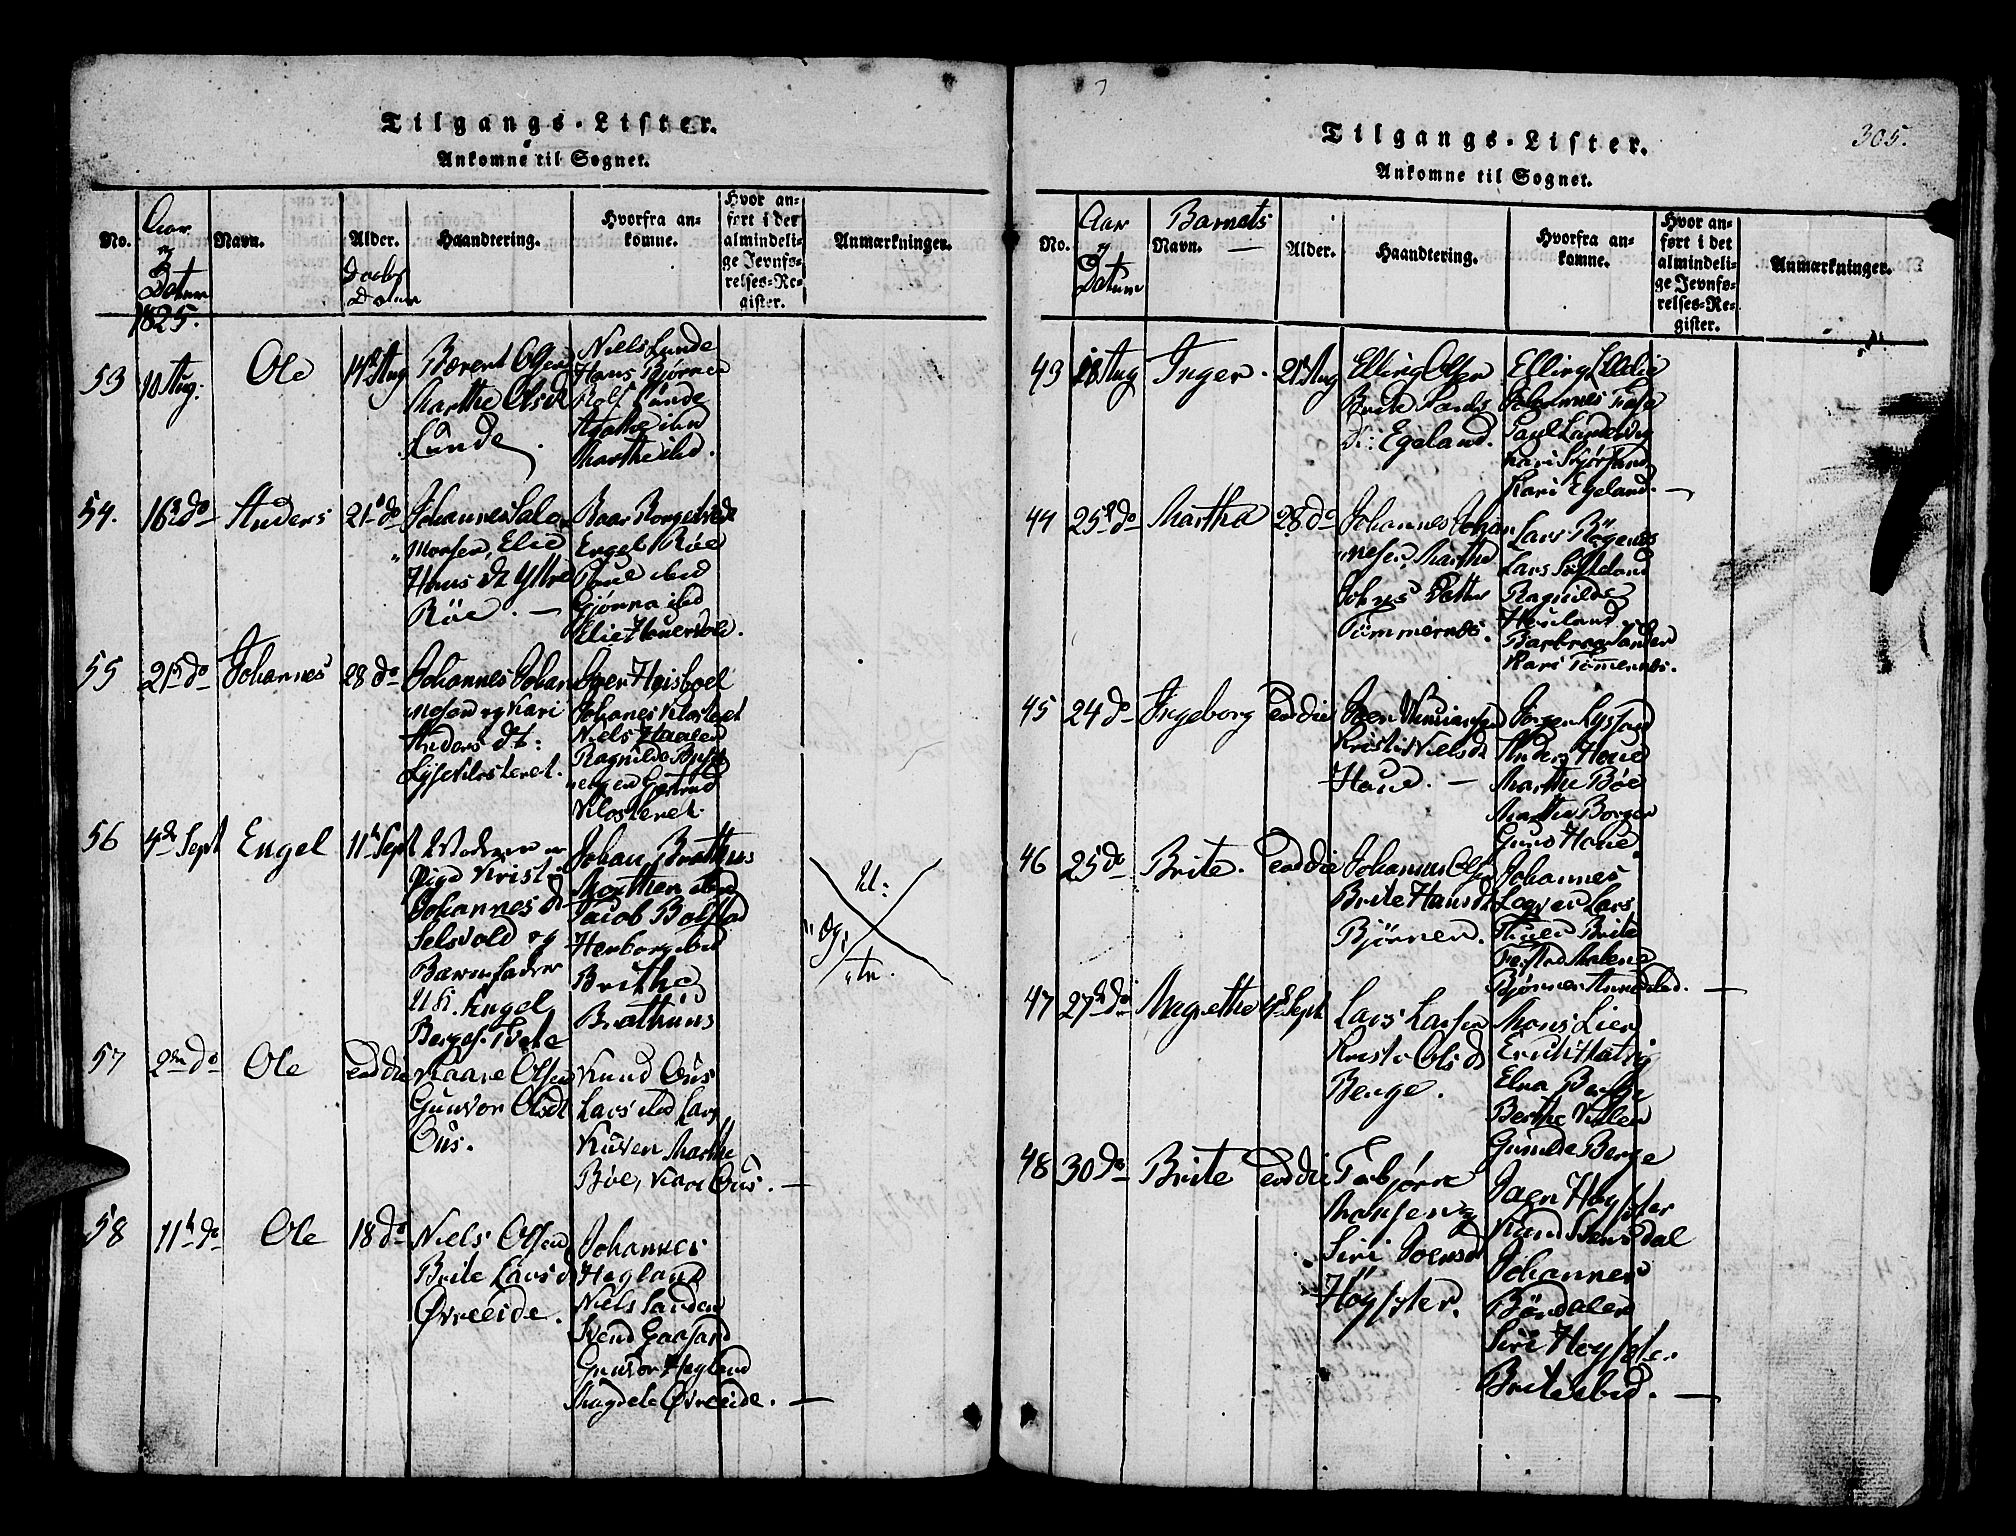 Tilgangs-Lister.
Ankomne til Sognet.
No.
Aar
og
Datum
1825.
Navn.
Alder.
Daabs
Datum
Haandtering.
Hvorfra an-
komne.
Hvor an-
ført i det
almindeli-
ge Jevnfø-
relses-Re-
gister.
Anmærkninger.
53
10 Aug.
Ole
14de Aug
Berent Olsen
Marthe Olsdt
Lunde.
Niels Lunde
Hans Bjørnen
Rolf Lunde
Agathe ibid
Marthe ibid.
54.
16 do
Anders
21 do
Johannes Salo-
monsen, Elie
Hans dt Yttre
Röe. —
Baar Borgetvedt
Engel Röe
Poul ibid
Gjönna ibid
Elie Hauersvold.
55
21 do
Johannes
28 do
Johannes Johan-
nesen og Kari
Anders dt:
Lyseklosteret.
Iver Hoisboel
Johanes Klosteret
Niels Haalen
Ragnilde
Gertrud
Klosteret.
56
4de Sept
Engel
11te Sept
Moderen er
Pige Kristi
Johannes dt
Selsvold og
Barnefader
U. K. Engel
Berges. Tvete
Johan Brathus
Morthen ibid
Jacob Bolstad
Herborg ibid
Brithe
Brathuus
U:
Æg,
te.
57
2den do
Ole
eod die
Kaare Olsen
Gunvor Olsdt
Ous.
Knud Ous
Lars ibid Lars
Kuven Marthe
Böe, Kari Ous. —
58
11te do
Ole
18 do
Niels Olsen
Brite Larsd
Øvreeide.
Johannes
Hegland
Niels Sanden
Svend Gaasand
Gunvor Hegland
Magdele Øvreeide. —
305.
Tilgangs-Lister.
Ankomne til Sognet.
No.
Aar
og
Datum
Barnets
Navn. —
Alder.
Haandtering.
Hvorfra an-
komne.
Hvor an-
ført i det
almindeli-
ge Jevnfø-
relses-Re-
gister.
Anmærkninger.
43
18 Aug
Inger.
21 Aug
Elling Olsen
Brite Larsds
Dr: Egeland.
Elling Lidlie
Johannes
Poul Landevig
Kari
Kari Egeland. —
44
25 do
Martha
28 do
Johannes Johan-
nesen, Marthe
Johns Datter
Tömmernes.
Lars Rögenes
Lars Söfteland
Ragnilde
Houland
Barbroe
Kari Tömernes.
45
24 do
Ingeborg
eod die
Joen
Kristi Nielsdt
Houe. —
Jörgen Lyssand
Anders Houe
Marthe Böe
Martha Borgen
Guro Houe
46
25 do
Brite.
eod die
Johannes Olsen
Brite Hansdt
Bjørnen.
Johannes
Loeven Lars
Thuen Brite
Malene
Bjørnen Anne ibid. —
47
27de do
Magrethe
4de Sept
Lars Larsen
Kristi Olsdt
Berge.
Mons Lien
Erich Hatvig
Elna Berge
Berthe Vallen
Gunilde Berge
48
30 do
Brite
eod die
Torbjørn
Monsen og
Siri Joensdt
Høysæter.
Joen Høysæter
Knud
Johannes
Böndalen
Siri Høysæter
Brite ibid. —